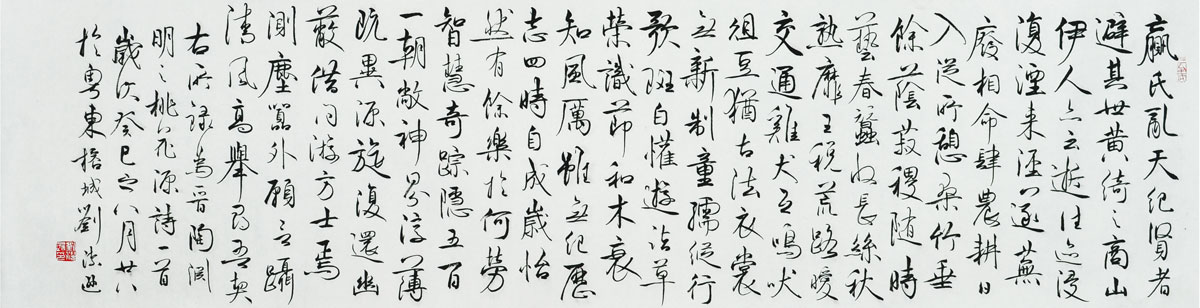 嬴氏亂天紀賢者
避其世黄綺之商山
伊人亦云逝往迹浸
復湮来逕遂蕪
廢相命肆農耕日
入從所憩桑竹垂
餘蔭菽稷随時
藝春蠶收長絲秋
熟靡王税荒路曖
交通雞犬互鳴吠
俎豆猶古法衣裳
無新制童孺縱行
歌班白懽遊詣草
榮識節和木衰
知風厲雖無紀歷
志四時自成歲怡
然有餘樂於何勞
智慧奇踪隱五百
一朝敞神界淳薄
既異源旋復還幽
蔽借问游方士焉
測塵囂外願言躡
清風高舉尋吾契
右所録為晋陶渊
明之桃花源詩一首
歲次癸巳之八月廿八
於粤東榕城劉